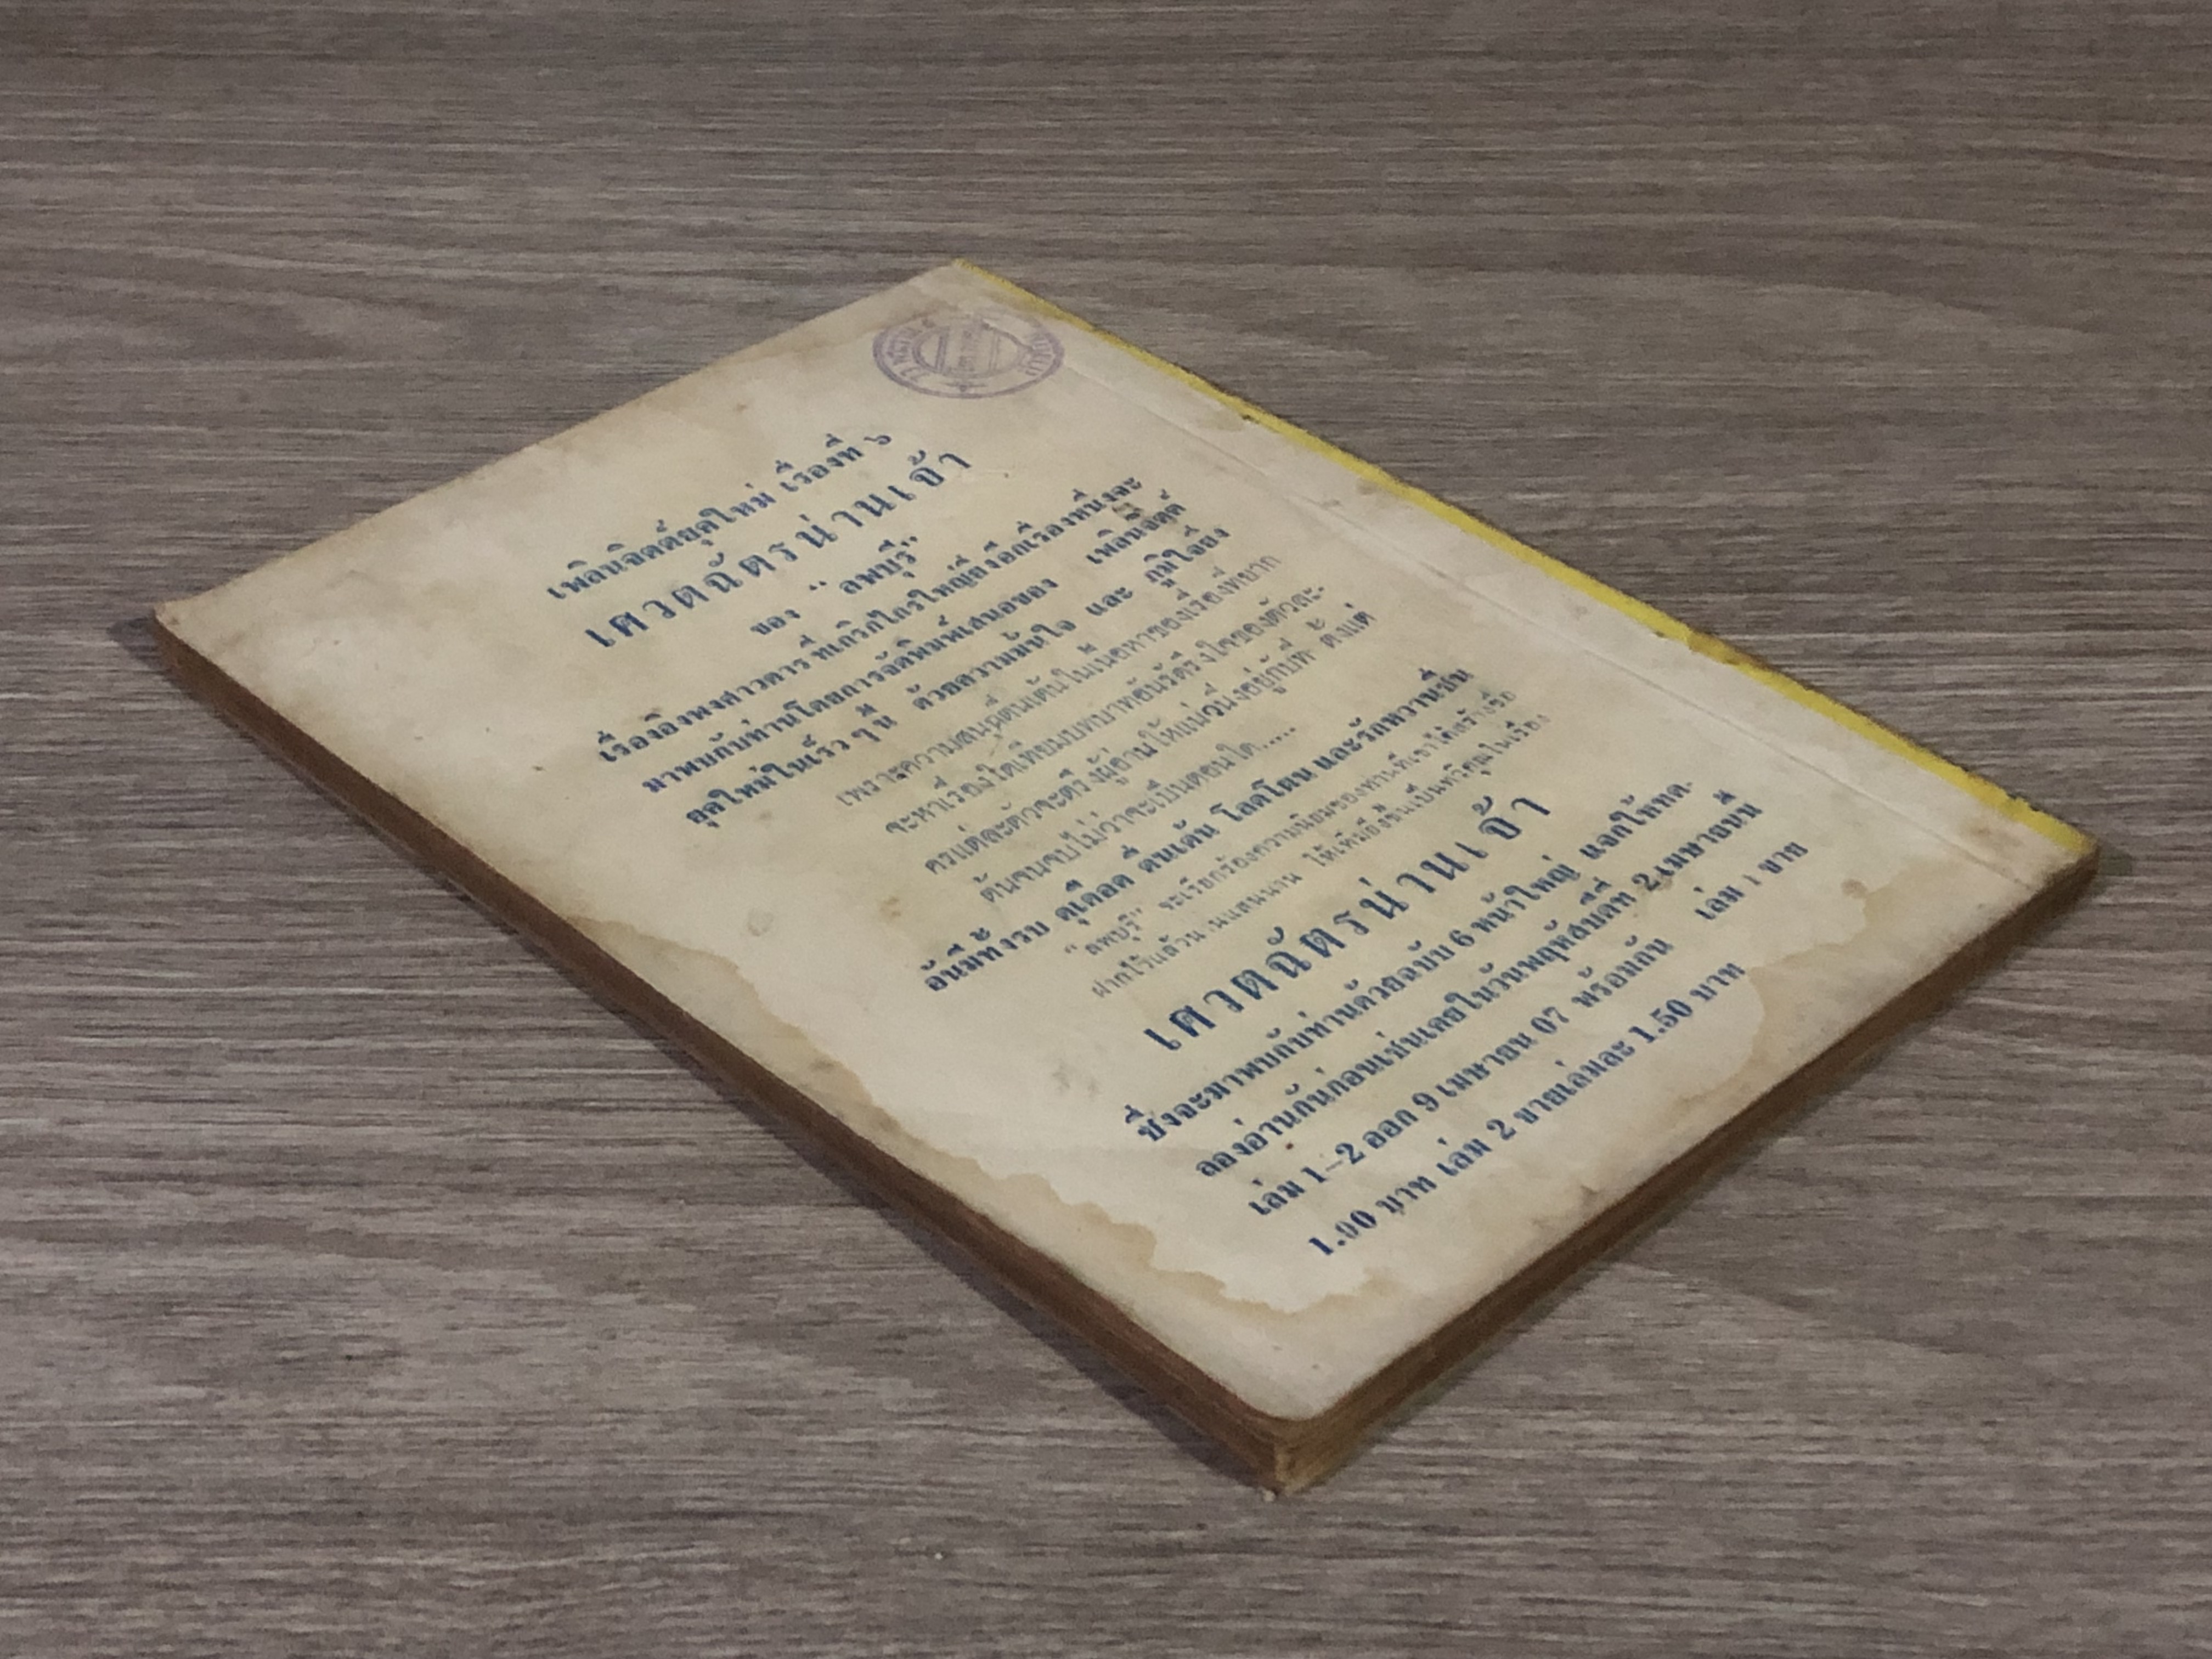 เพลินจิตต์ยุคใหม่ เรื่องที่ ๖
เศวตฉัตรน่านเจ้า
ของ " ลพบุรี"
เรื่องอิงพงศาวดาร ที่เกริกไกรใหญ่ยิ่งอีกเรื่องหนึ่งจะ
มาพบกับท่านโดยการจัดพิมพ์เสนอของ เพลินจิตต์
ยุคใหม่ในเร็ว ๆ นี้ ด้วยความมั่นใจ และ ภูมิใจยิ่ง
เพราะความสนุกตื่นเต้นในเนื้อหาของเรื่องที่ยาก
จะหาเรื่องใดเทียมบทบาทอันรัดรึงใจของตัวละ-
ครแต่ละตัวจะตรึงผู้อ่านให้แน่วนิ่งอยู่กับที่ ตั้งแต่
ต้นจนจบไม่ว่าจะเป็นตอนใด.....
อันมีทั้งรบ ดุเดือด ตื่นเต้น โลดโผน และรักหวานชื่น
"ลพบุรี" จะเรียกร้องความนิยมของท่านที่เขาได้สร้างชื่อ
ฝากไว้แล้วนานแสนนาน ให้เพิ่มยิ่งขึ้นเป็นทวีคูณในเรื่อง
เศวตฉัตรน่านเจ้า
ซึ่งจะมาพบกับท่านด้วยฉบับ 6 หน้าใหญ่ แจกให้ทด-
ลองอ่านกันก่อนเช่นเคยในวันพฤหัสบดีที่ 2 เมษายนนี้
เล่ม 1-2 ออก 9 เมษายน 07 พร้อมกัน เล่ม 1 ขาย
1.00 บาท เล่ม 2 ขายเล่มละ 1.50 บาท